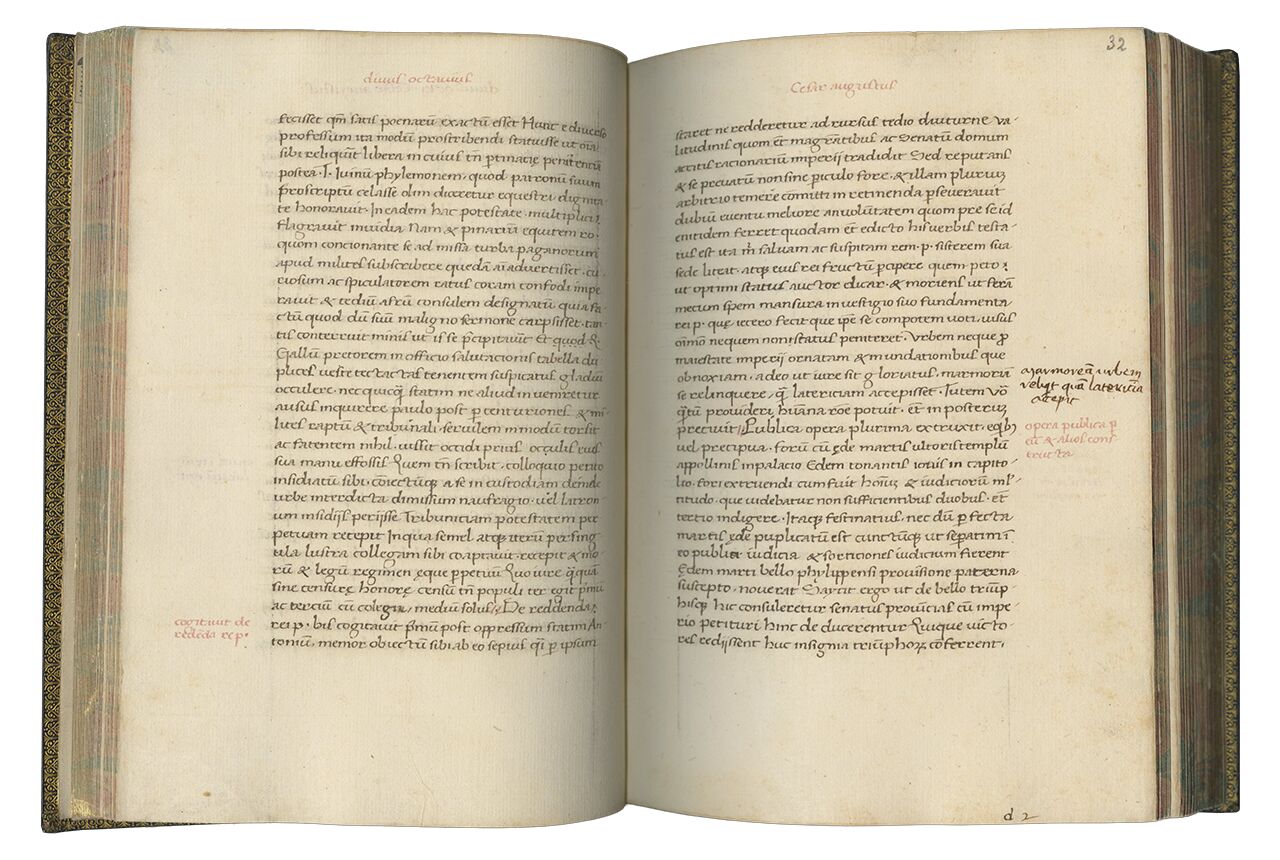 diuus octauius
fecisset qm satis poenarũ exactũ esset Hunc e diuerso
professum ita modũ proscribendi statuisse ut oĩa
sibi reliquĩt libera in cuius tñ ptinacię penitentia
postea · T · Iuniũ phylemonem · quod patronũ suum
proscriptũ celasse olim diceretur equestri dignita
te honorauit · In eadem hac potestate · multiplici
flagrauit inuidia Nam & pinariũ equitem ro ·
quom concionante se ad missa turba paganorum
apud milites subscribere quedã aĩaduertisset · cu
riosum ac speculatorem ratus coram confodi impe
rauit & tediũ afrũ consulem designatũ quia fa
ctũ quod dũ suũ maligno sermone carpsisset · tan
tis conterruit minis ut is se p̃cipitauit Et quod Q ·
Gallũ pretorem in officio saluacionis tabella du
plices ueste tectas tenentem suspicatus gladiũ
occulere · nec quicq̃ statim ne aliud inueniretur
ausus inquirere paulo post p centuriones & mi
lites raptũ & tribunali · seruilem in modũ torsit
ac fatentem nihil · iussit occidi prius oculis eius
sua manu effossis Quem tñ scribit · colloquio petito
insidiatũ sibi · coiectũq; a se in custodiam deinde
urbe interdicta dimissum naufragio · uel latron ·
um insidijs perijsse Tribuniciam potestatem per
petuam recepit In qua semel atq; iterũ per sing ·
tula lustra collegam sibi cooptauit recepit & mo ·
rũ & legũ regimen ęque p petuũ Quo iure q̃quã
sine censurę honore censũ tñ populi ter egit p̃mũ
ac terciũ cũ colega · mediũ solus De reddenda
rei p · bis cogitauit p̃mũ post oppressum statim An ·
toniũ · memor obiectũ sibi ab eo sepius q̃si p ipsum
cogitauit de
redẽda re p ·
32
Cesar augustus
staret ne redderetur ad rursus tedio diuturne ua ·
litudinis quom et̃ magr̃atibus ac Senatũ domum
accitis racionariũ imperij tradidit Sed reputans
& se preuatũ non sine piculo fore · & illam plurius
arbitrio temere cõmitti in retinenda p seuerauit
dubiũ euentu meliore an uolũtatem quom pre se id
entidem ferret quodam et̃ edicto his uerbis testa ·
tus est ita m̃ saluam ac suspitam rem · p · sisterem sua
sede liceat · atq; eius rei fructũ p cipere quem peto ·
ut optimi status auctor dicar · & moriens ut ferã
mecum spem mansura in uestigio suo fundamenta
rei p · quę iecero fecit que ip̃e se compotem uoti · uisus
oĩmo nequem noui status peniteret · Vrbem neque p
maiestate imperij ornatam & inundationibus que
obnoxiam · adeo ut iure sit gloriatus · marmoriã
se relinquere · q̃ latericiam accepisset · Tutem uõ
q̃tũ prouideri humana rõe potuit · et̃ in posterũ
prestitit Publica opera plurima extruxit · eq̃b)
uel precipua · forũ cũ ęde martis ultoris templũ
appollinis in palacio Edem tonantis iouis in capito
lio · fori extruendi cum fuit hoĩũ & iudiciorũ ml ·
titudo · que uidebatur non sufficientibus duobus · et̃
tertio indigere · Itaq; festinatius · nec dũ p fecta
martis ęde puplicatũ est cunctũq; ut separatim ĩ
eo publica iudicia & sorticiones iudicium fierent
Ędem marti bello phylippensi prouisione paterna
suscepto · nouerat Sancit ergo ut de bello triũp ·
hisq; hic consuleretur senatus prouicias cũ impe ·
rio petituri hinc de ducerentur Quique uicto ·
res redijssent huc insignia triũphoꝝ cõferrent ·
marmoreã urbem
relĩqt quã latericiã
accepit
opera publica p
eũ & alios cons
tructa
d 2